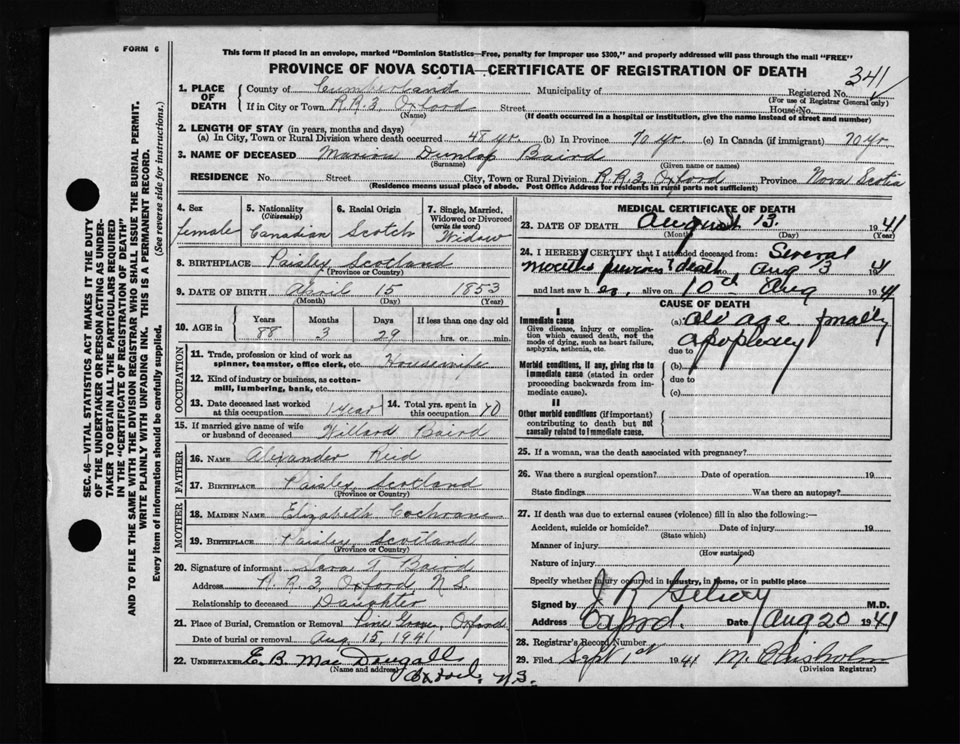 FORM 6
This form if placed in an envelope, marked "Dominion Statistics—Free, penalty for improper use $300," and properly addressed will pass through the mail "FREE"
PROVINCE OF NOVA SCOTIA—CERTIFICATE OF REGISTRATION OF DEATH
341
1. PLACE OF DEATH
County of Cumberland Municipality of Registered No.
(For use of Registrar General only)
If in City or Town R.R.3, Oxford Street House No.
(Name) (If death occurred in a hospital or institution, give the name instead of street and number)
2. LENGTH OF STAY (in years, months and days)
(a) In City, Town or Rural Division where death occurred 48 yr. (b) In Province 70 yr. (c) In Canada (if immigrant) 70 yr.
3. NAME OF DECEASED Marion Dunlop Baird
(Surname) (Given name or names)
RESIDENCE No. Street City, Town or Rural Division R.R.3, Oxford Province Nova Scotia
(Residence means usual place of abode. Post Office Address for residents in rural parts not sufficient)
4. Sex female
5. Nationality (Citizenship) Canadian
6. Racial Origin Scotch
7. Single, Married, Widowed or Divorced (write the word) Widow
8. BIRTHPLACE Paisley Scotland
(Province or Country)
9. DATE OF BIRTH April 15 1853
(Month) (Day) (Year)
10. AGE in Years Months Days If less than one day old
88 3 29 hrs. or min.
OCCUPATION
11. Trade, profession or kind of work as spinner, teamster, office clerk, etc. Housewife
12. Kind of industry or business, as cotton-mill, lumbering, bank, etc.
13. Date deceased last worked at this occupation 1 year 14. Total yrs. spent in this occupation 40
15. If married give name of wife or husband of deceased Willard Baird
FATHER
16. NAME Alexander Reid
17. BIRTHPLACE Paisley, Scotland
(Province or Country)
MOTHER
18. MAIDEN NAME Elizabeth Cochrane
19. BIRTHPLACE Paisley, Scotland
(Province or Country)
20. Signature of informant T. Baird
Address R.R.3, Oxford, N.S.
Relationship to deceased Daughter
21. Place of Burial, Cremation or Removal Pine Grove, Oxford
Date of burial or removal Aug 15, 1941
22. UNDERTAKER E. B. MacDougall
(Name and address) Oxford, N.S.
MEDICAL CERTIFICATE OF DEATH
23. DATE OF DEATH August 13. 1941
(Month) (Day) (Year)
24. I HEREBY CERTIFY that I attended deceased from: Several
months previous to death to Aug 3 1941
and last saw her alive on 10th Aug 1941
CAUSE OF DEATH
I
Immediate cause
Give disease, injury or complication which caused death, not the mode of dying, such as heart failure, asphyxia, asthenia, etc.
(a) old age finally
apoplexy
due to
Morbid conditions, if any, giving rise to immediate cause (stated in order proceeding backwards from immediate cause).
(b)
due to
(c)
II
Other morbid conditions (if important) contributing to death but not causally related to immediate cause.
25. If a woman, was the death associated with pregnancy?
26. Was there a surgical operation? Date of operation 19
State findings Was there an autopsy?
27. If death was due to external causes (violence) fill in also the following:—
Accident, suicide or homicide? Date of injury 19
(State which)
Manner of injury
(How sustained)
Nature of injury
Specify whether injury occurred in industry, in home, or in public place
Signed by J R M.D.
Address Oxford. Date Aug 20 1941
28. Registrar's Record Number
29. Filed Sept 1st 1941 M. Chisholm
(Division Registrar)
SEC. 46—VITAL STATISTICS ACT MAKES IT THE DUTY
OF THE UNDERTAKER OR PERSON ACTING AS UNDER-
TAKER TO OBTAIN ALL THE PARTICULARS REQUIRED
IN THE "CERTIFICATE OF REGISTRATION OF DEATH"
AND TO FILE THE SAME WITH THE DIVISION REGISTRAR WHO SHALL ISSUE THE BURIAL PERMIT.
WRITE PLAINLY WITH UNFADING INK. THIS IS A PERMANENT RECORD.
Every item of information should be carefully supplied. (See reverse side for instructions.)